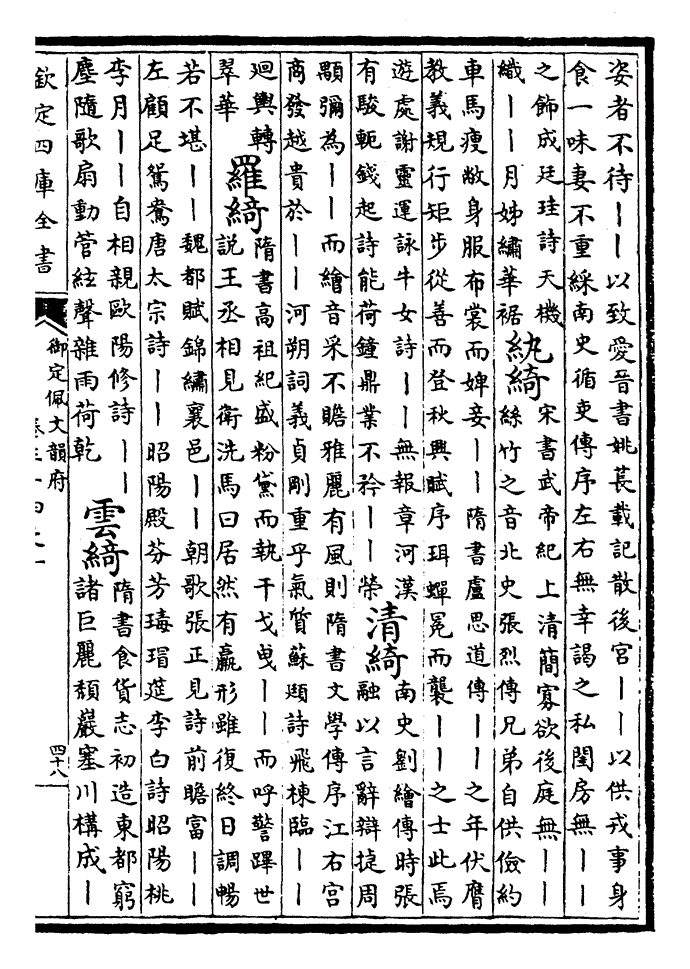 姿者不待〡〡以致愛晉書姚萇載記散後宮〡〡以供戎事身
食一味妻不重綵南史循吏傳序左右無幸謁之私閨房無〡〡
之飾成廷珪詩天機
織〡〡月姊繡華裾
紈綺
宋書武帝紀上清簡寡欲後庭無〡〡
絲竹之音北史張烈傳兄弟自供儉約
車馬瘦敝身服布裳而婢妾〡〡隋書盧思道傳〡〡之年伏膺
教義規行矩步從善而登秋興賦序珥蟬冕而襲〡〡之士此焉
遊處謝靈運詠牛女詩〡〡無報章河漢
有駿軛錢起詩能荷鐘鼎業不矜〡〡榮
清綺
南史劉繪傳時張
融以言辭辯捷周
顒彌為〡〡而繪音采不贍雅麗有風則隋書文學傳序江右宮
商發越貴於〡〡河朔詞義貞剛重乎氣質蘇頲詩飛棟臨〡〡
廻輿轉
翠華
羅綺
隋書高祖紀盛粉黛而執干戈曳〡〡而呼警蹕世
說王丞相見衛洗馬曰居然有羸形雖復終日調暢
若不堪〡〡魏都賦錦繡襄邑〡〡朝歌張正見詩前瞻富〡〡
左顧足鴛鴦唐太宗詩〡〡昭陽殿芬芳瑇瑁筵李白詩昭陽桃
李月〡〡自相親歐陽修詩〡〡
塵隨歌扇動管絃聲雜雨荷乾
雲綺
隋書食貨志初造東都窮
諸巨麗頹巖塞川構成〡
欽定四庫全書
御定佩文韻府
卷三十四之一
四十八